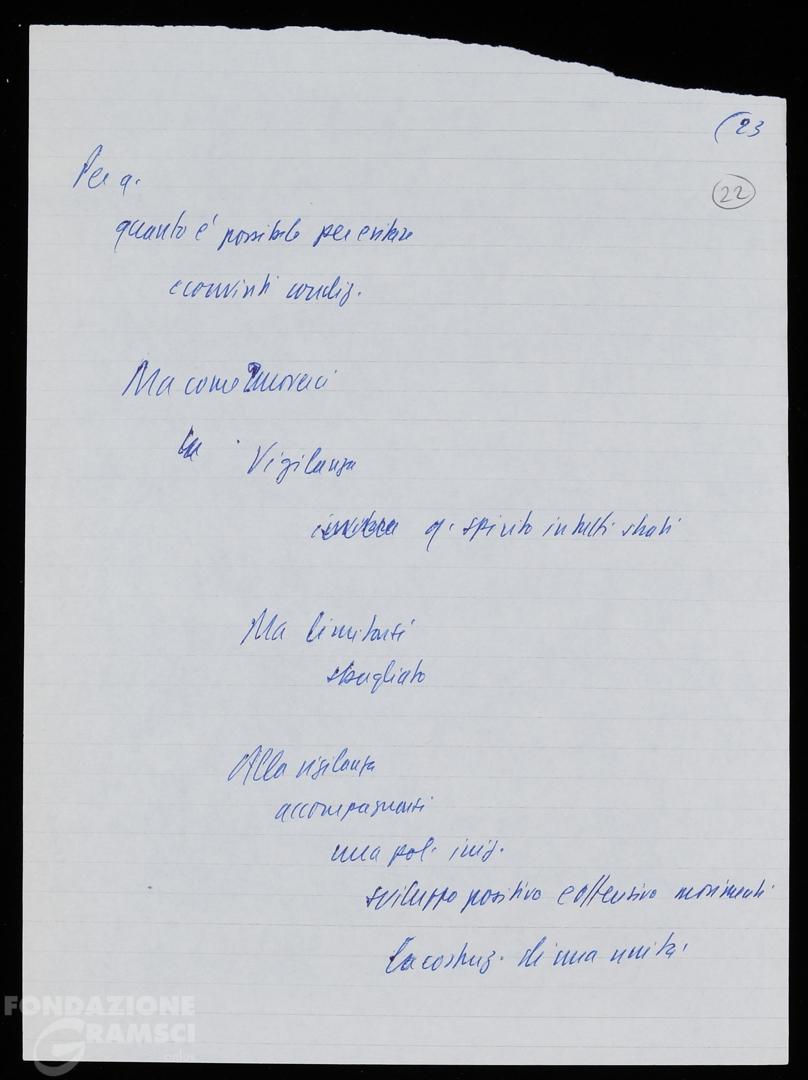 (23
22
Per q.
quanto è possibile per evitare
e convinti condiz.
Ma come muoverci
Vigilanza
q. spirito in tutti strati
Ma limitarsi
sbagliato
Alla vigilanza
accompagnarsi
una pol. iniz.
sviluppo positivo e offensivo movimenti
la costruz. di una unità.
FONDAZIONE
GRAMSCI
onlus